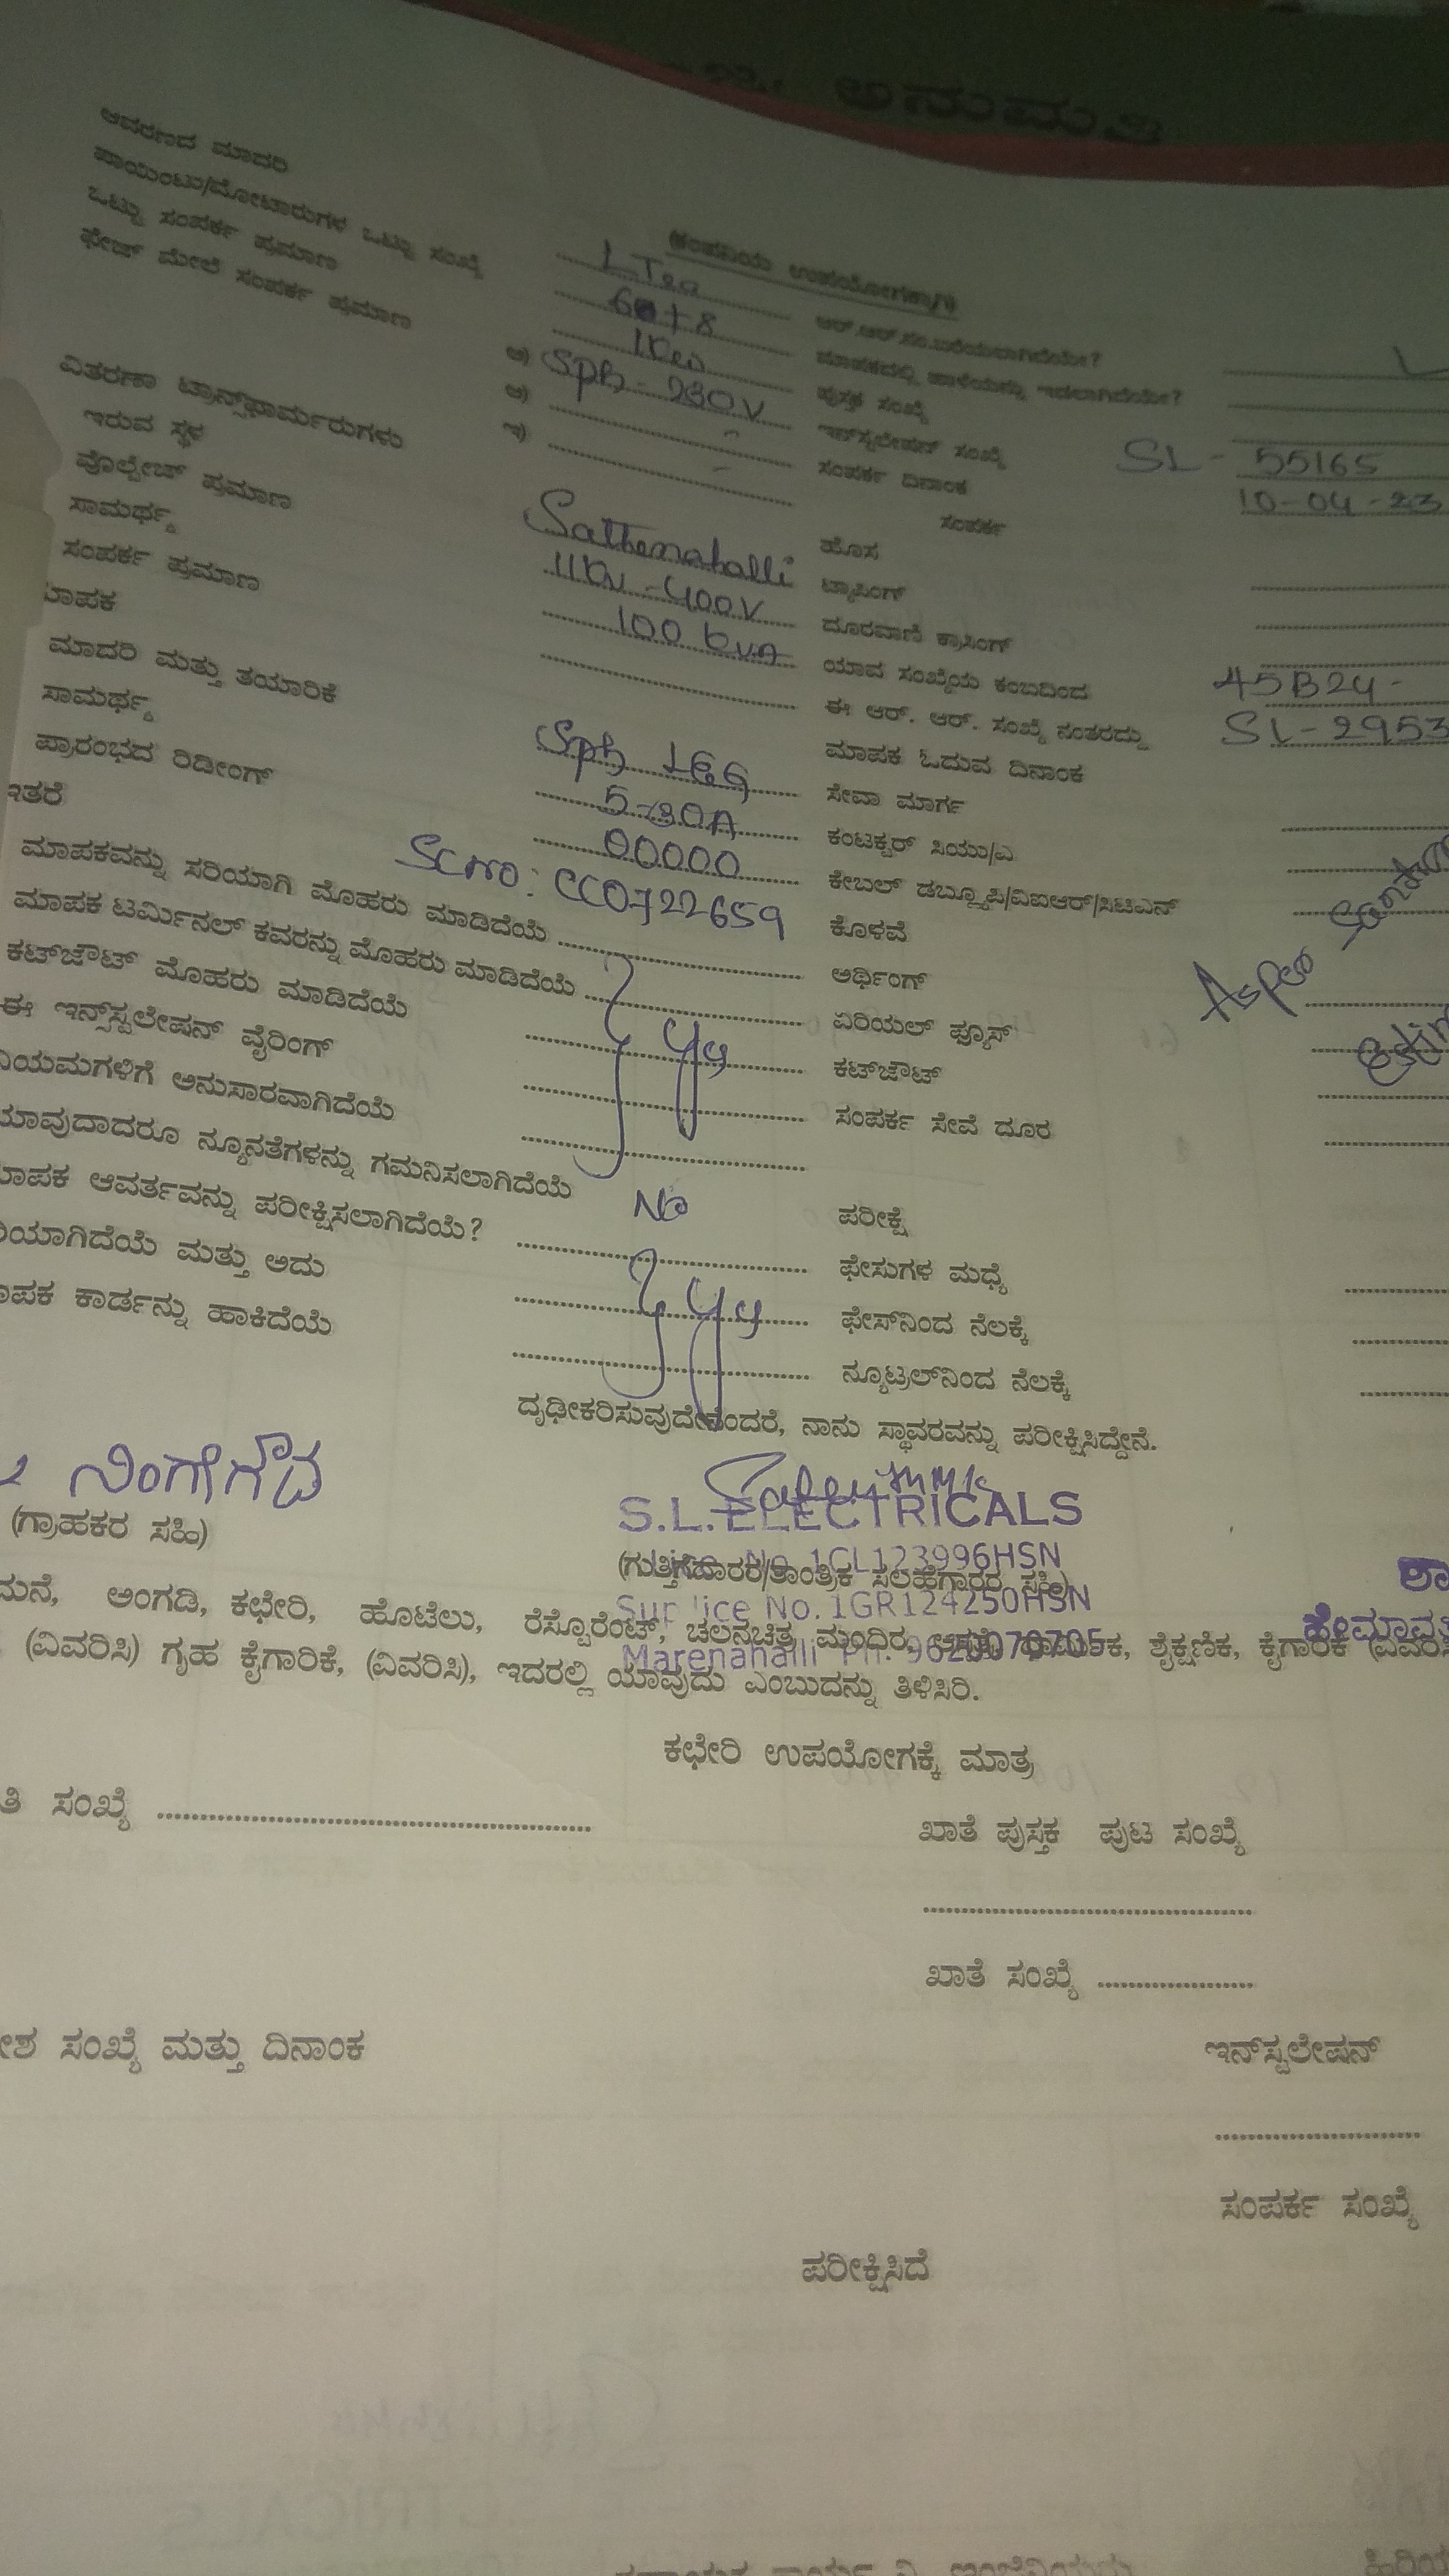 ಅನುಮತಿ
(ಕಂಪನಿಯ ಉಪಯೋಗಕ್ಕಾಗಿ)
ಆವರಣದ ಮಾದರಿ
ಪಾಯಿಂಟು/ಮೋಟಾರುಗಳ ಒಟ್ಟು ಸಂಖ್ಯೆ
ಒಟ್ಟು ಸಂಪರ್ಕ ಪ್ರಮಾಣ
ಫೇಜ್ ಮೇಲೆ ಸಂಪರ್ಕ ಪ್ರಮಾಣ
ಅ) Sph - 230V
ಆ) -
ಇ) -
ವಿತರಣಾ ಟ್ರಾನ್ಸ್‌ಫಾರ್ಮರುಗಳು
ಇರುವ ಸ್ಥಳ Sathenahalli
ವೊಲ್ಟೇಜ್ ಪ್ರಮಾಣ 11kv - 400V
ಸಾಮರ್ಥ್ಯ 100 kva
ಸಂಪರ್ಕ ಪ್ರಮಾಣ
ಮಾದರಿ ಮತ್ತು ತಯಾರಿಕೆ Sph L&G
ಸಾಮರ್ಥ್ಯ 5-30A
ಪ್ರಾರಂಭದ ರಿಡೀಂಗ್ 00000
ಇತರೆ Sc no: CC0722659
ಮಾಪಕವನ್ನು ಸರಿಯಾಗಿ ಮೊಹರು ಮಾಡಿದೆಯೆ
ಮಾಪಕ ಟರ್ಮಿನಲ್ ಕವರನ್ನು ಮೊಹರು ಮಾಡಿದೆಯೆ
ಕಟ್‌ಔಟ್ ಮೊಹರು ಮಾಡಿದೆಯೆ
ಈ ಇನ್‌ಸ್ಟಲೇಷನ್ ವೈರಿಂಗ್
ಅನುಸಾರವಾಗಿದೆಯೆ
ನ್ಯೂನತೆಗಳನ್ನು ಗಮನಿಸಲಾಗಿದೆಯೆ No
ಆವರ್ತವನ್ನು ಪರೀಕ್ಷಿಸಲಾಗಿದೆಯೆ?
ಮತ್ತು ಅದು
ಕಾರ್ಡನ್ನು ಹಾಕಿದೆಯೆ
ಆರ್.ಆರ್.ಸಂ.ಬರೆಯಲಾಗಿದೆಯೇ?
ಪುಸ್ತಕ ಸಂಖ್ಯೆ
ಇನ್‌ಸ್ಟಲೇಷನ್ ಸಂಖ್ಯೆ SL - 55165
ಸಂಪರ್ಕ ದಿನಾಂಕ 10-04-23
ಸಂಪರ್ಕ
ಹೊಸ
ಟ್ಯಾಪಿಂಗ್
ದೂರವಾಣಿ ಕ್ರಾಸಿಂಗ್
ಯಾವ ಸಂಖ್ಯೆಯ ಕಂಬದಿಂದ 45B24-
ಈ ಆರ್. ಆರ್. ಸಂಖ್ಯೆ ನಂತರದ್ದು SL-2953
ಮಾಪಕ ಓದುವ ದಿನಾಂಕ
ಸೇವಾ ಮಾರ್ಗ
ಕಂಟಕ್ಟರ್ ಸಿಯು/ಎ
ಕೇಬಲ್ ಡಬ್ಲ್ಯೂಪಿ/ವಿಐಆರ್/ಸಿಟಿಎನ್
ಕೊಳವೆ
ಅರ್ಥಿಂಗ್
ಏರಿಯಲ್ ಫ್ಯೂಸ್
ಕಟ್‌ಔಟ್
ಸಂಪರ್ಕ ಸೇವೆ ದೂರ
ಪರೀಕ್ಷೆ
ಫೇಸುಗಳ ಮಧ್ಯೆ
ಫೇಸ್‌ನಿಂದ ನೆಲಕ್ಕೆ
ನ್ಯೂಟ್ರಲ್‌ನಿಂದ ನೆಲಕ್ಕೆ
ದೃಢೀಕರಿಸುವುದೇನೆಂದರೆ, ನಾನು ಸ್ಥಾವರವನ್ನು ಪರೀಕ್ಷಿಸಿದ್ದೇನೆ.
ನಿಂಗೇಗೌಡ
(ಗ್ರಾಹಕರ ಸಹಿ)
S.L. ELECTRICALS
No. 1CL123996HSN
(ಗುತ್ತಿಗೆದಾರರ/ತಾಂತ್ರಿಕ ಸಲಹೆಗಾರರ ಸಹಿ)
Sup lice No. 1GR124250HSN
Marenahalli Ph: 9620070705
ಮನೆ, ಅಂಗಡಿ, ಕಛೇರಿ, ಹೊಟೆಲು, ರೆಸ್ಟೊರೆಂಟ್, ಚಲನಚಿತ್ರ ಮಂದಿರ, ಶೈಕ್ಷಣಿಕ, ಕೈಗಾರಿಕೆ
(ವಿವರಿಸಿ) ಗೃಹ ಕೈಗಾರಿಕೆ, (ವಿವರಿಸಿ), ಇದರಲ್ಲಿ ಯಾವುದು ಎಂಬುದನ್ನು ತಿಳಿಸಿರಿ.
ಕಛೇರಿ ಉಪಯೋಗಕ್ಕೆ ಮಾತ್ರ
ಸಂಖ್ಯೆ
ಖಾತೆ ಪುಸ್ತಕ ಪುಟ ಸಂಖ್ಯೆ
ಖಾತೆ ಸಂಖ್ಯೆ
ಸಂಖ್ಯೆ ಮತ್ತು ದಿನಾಂಕ
ಇನ್‌ಸ್ಟಲೇಷನ್
ಸಂಪರ್ಕ ಸಂಖ್ಯೆ
ಪರೀಕ್ಷಿಸಿದೆ